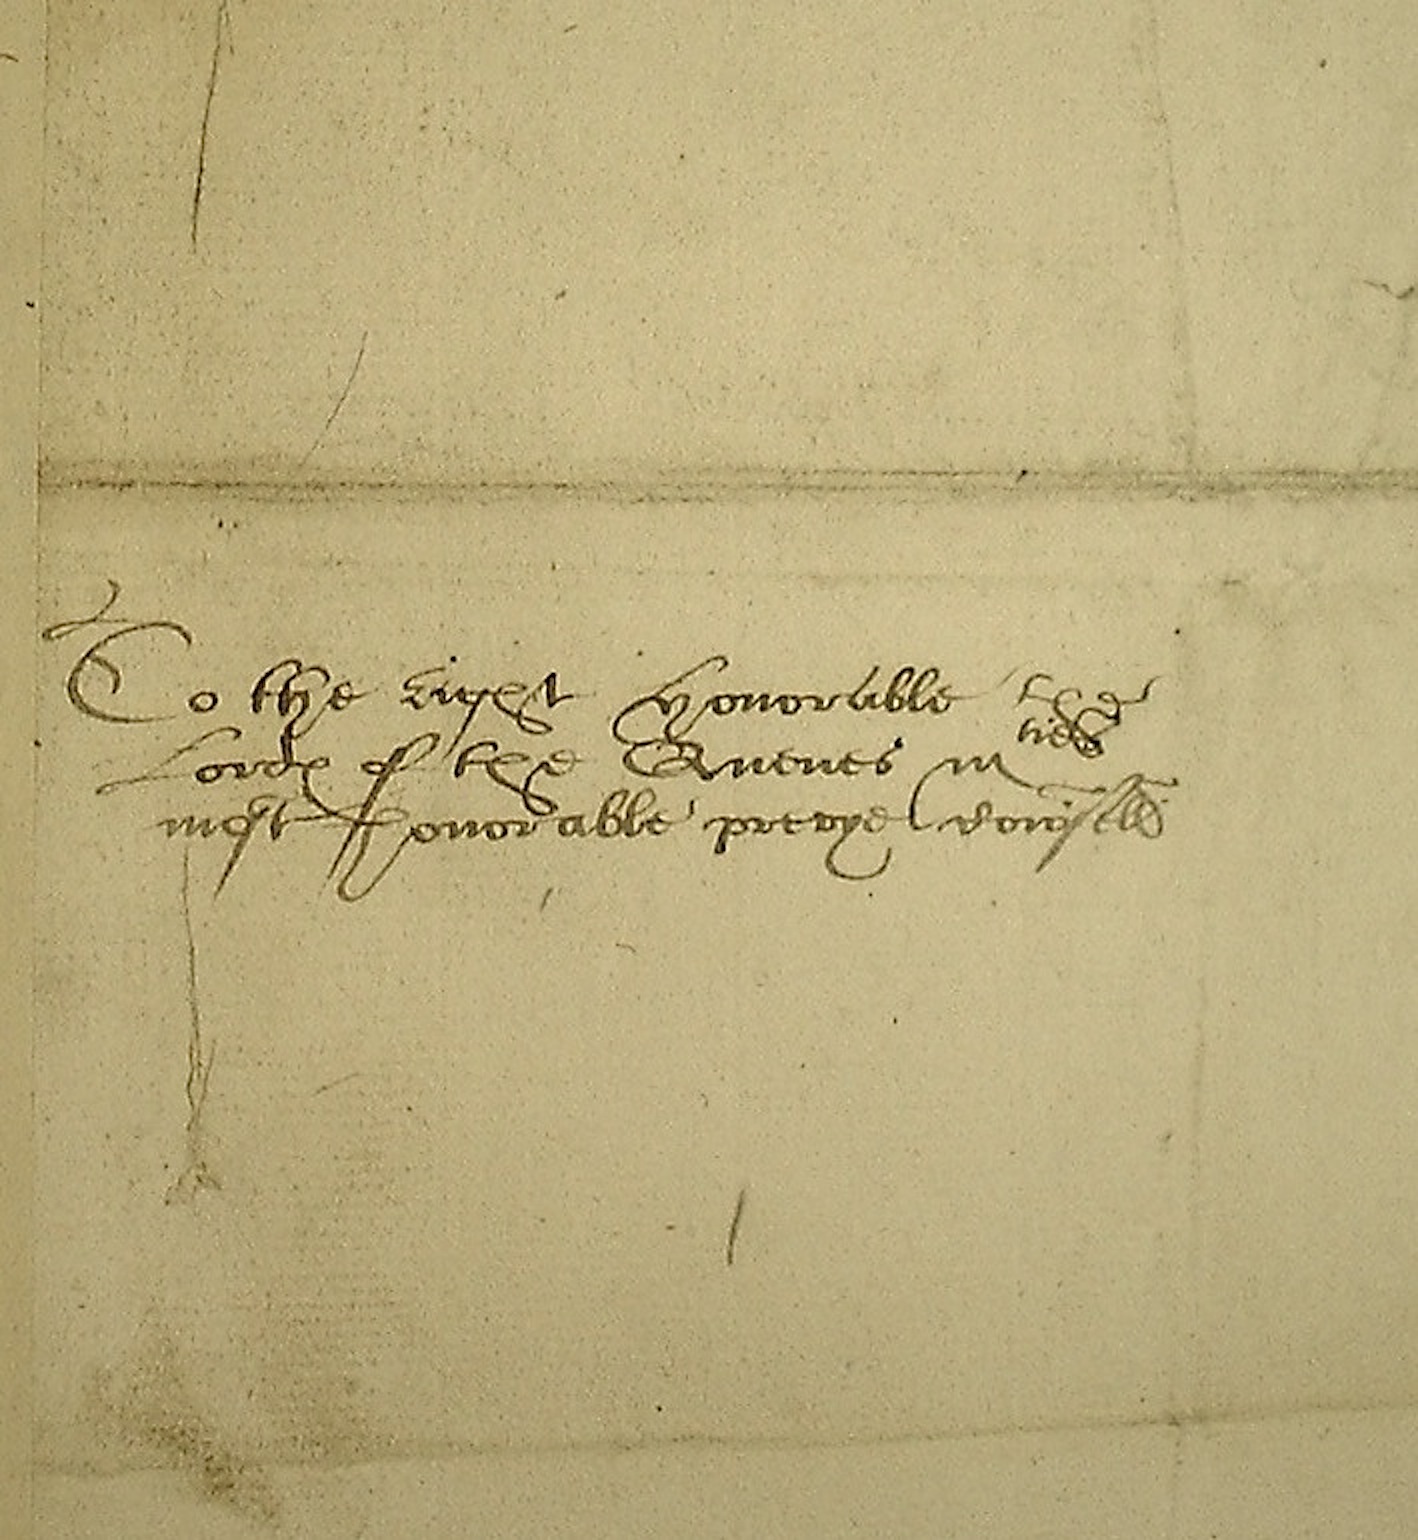 To the right honorable the
Lordes of the Quenes maties
most honorable prevye Counsell